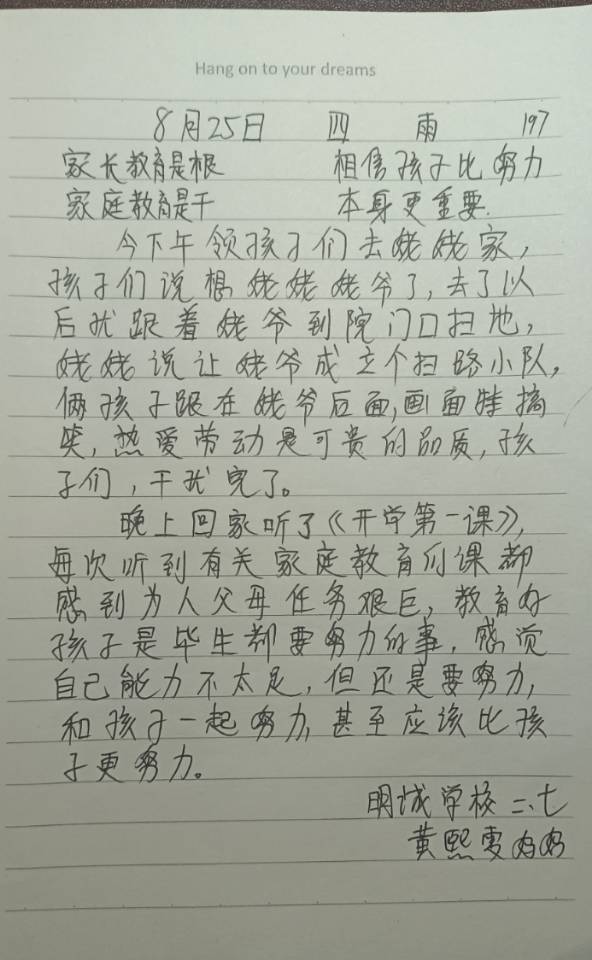 Hang on to your dreams
8月25日 四 雨 197
家长教育是根 相信孩子比努力
家庭教育是干 本身更重要.
今下午领孩子们去姥姥家,
孩子们说想姥姥姥爷了,去了以
后就跟着姥爷到院门口扫地,
姥姥说让姥爷成立个扫路小队,
俩孩子跟在姥爷后面,画面挺搞
笑,热爱劳动是可贵的品质,孩
子们,干就完了。
晚上回家听了《开学第一课》,
每次听到有关家庭教育的课都
感到为人父母任务艰巨,教育好
孩子是毕生都要努力的事,感觉
自己能力不太足,但还是要努力,
和孩子一起努力,甚至应该比孩
子更努力。
明诚学校 二、七
黄熙雯妈妈